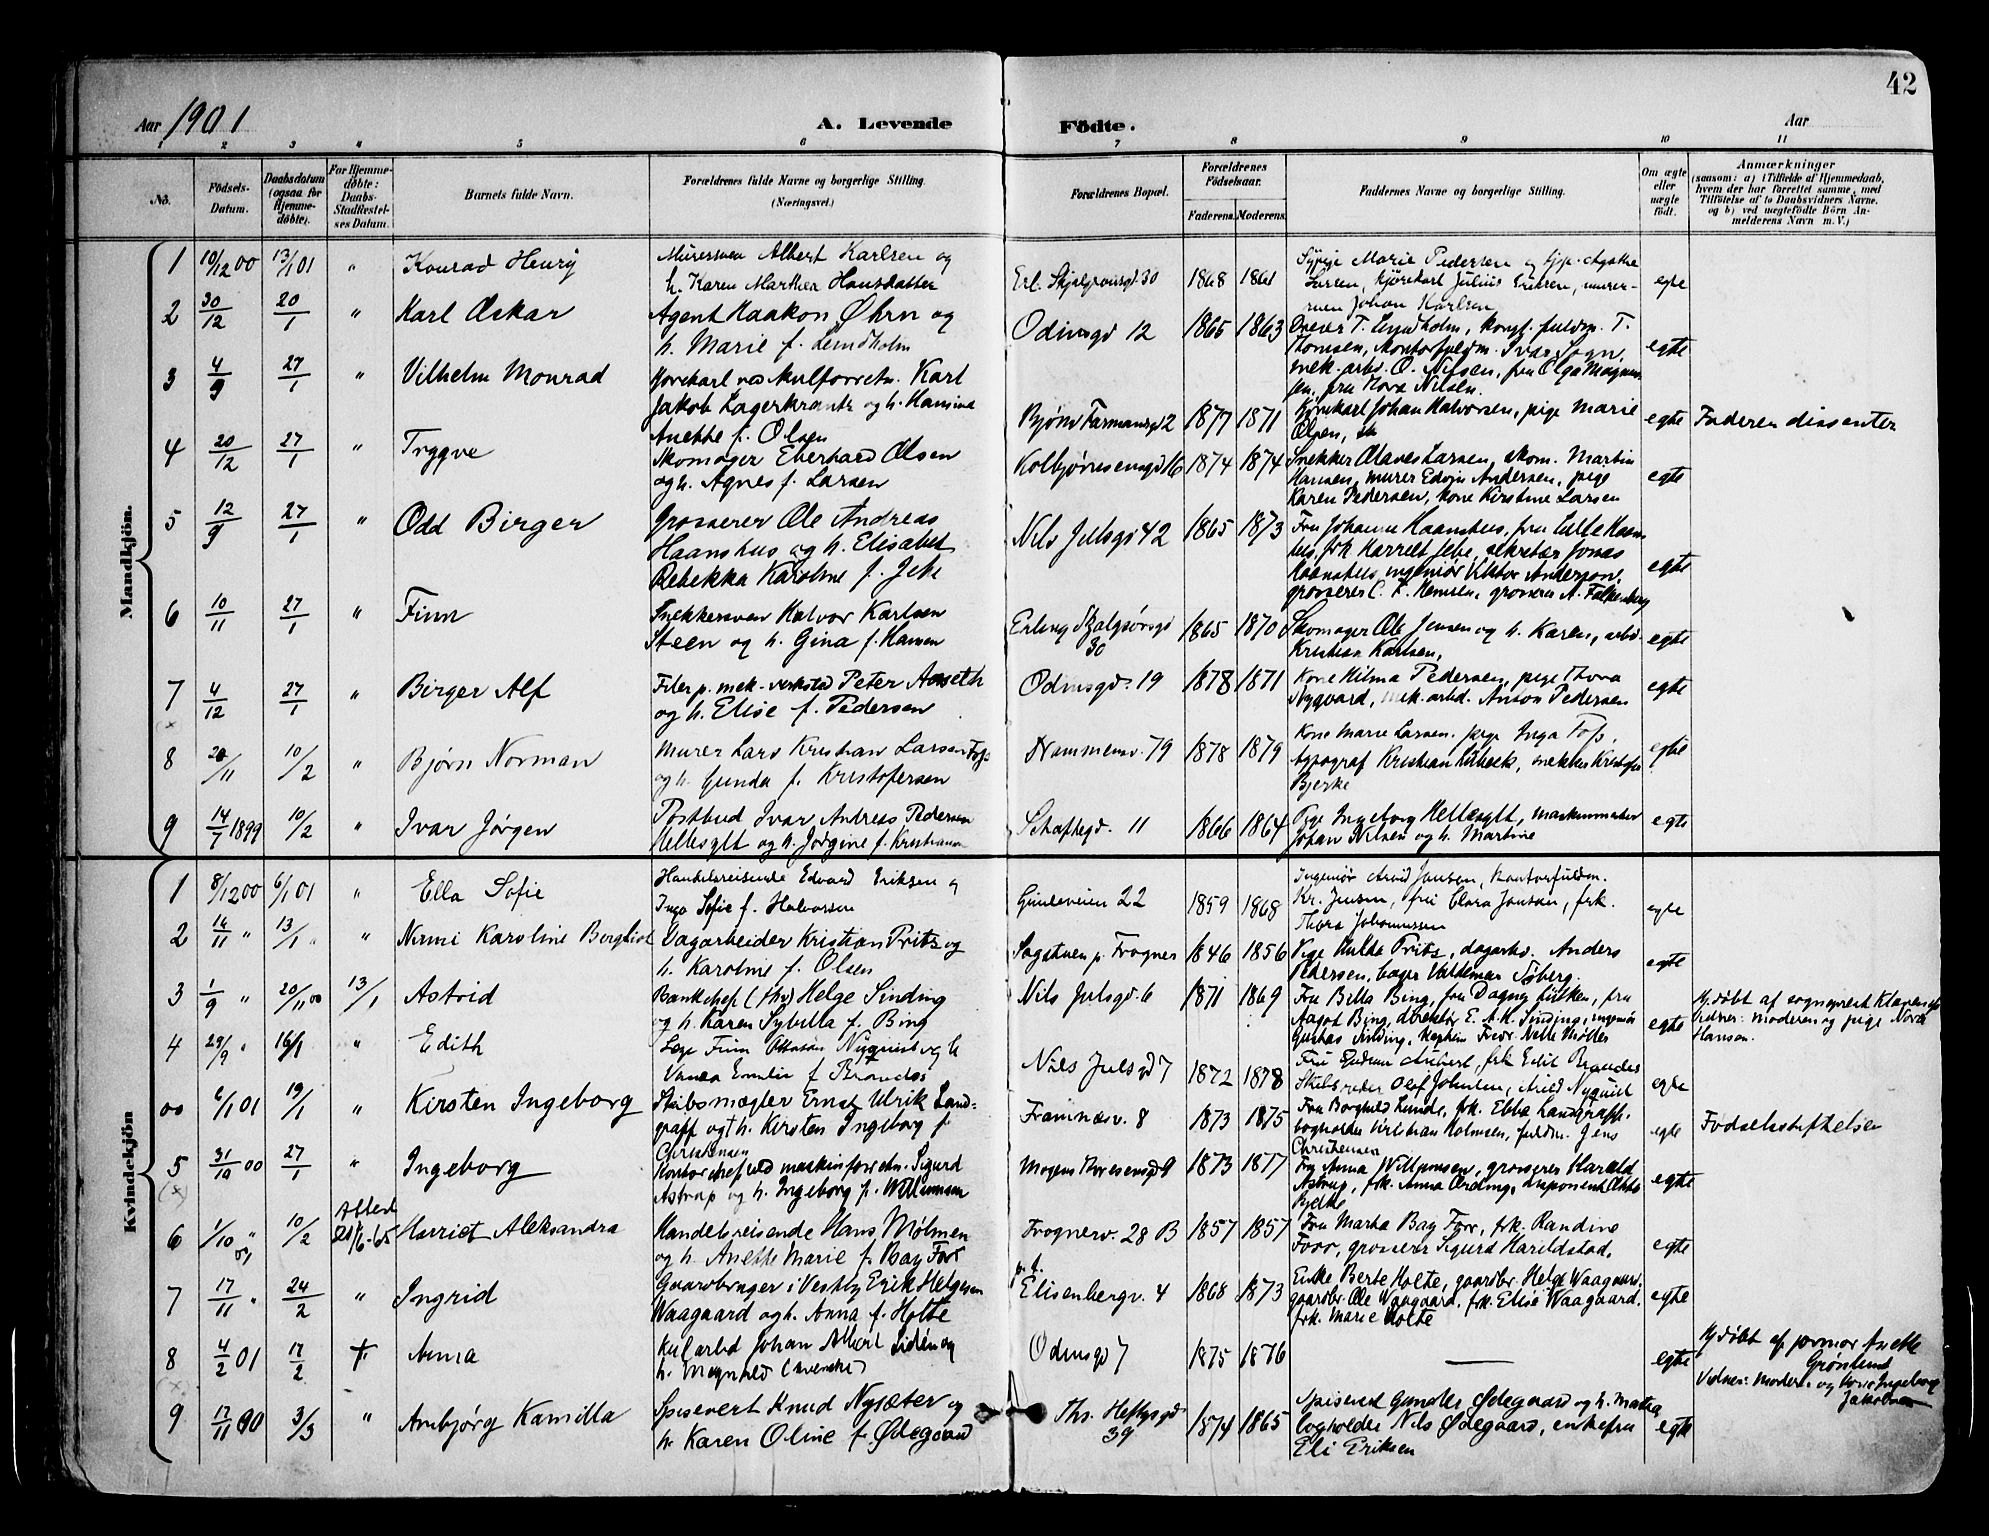 42
Aar 1901 A. Levende Fødte. Aar
1 2 3 4 5 6 7 8 9 10 11
No. Fødsels-Datum. Daabsdatum (ogsaa for Hjemmedøbte). For Hjemmedøbte: Daabs-Stadfæstelses Datum. Barnets fulde Navn. Forældrenes fulde Navne og borgerlige Stilling. (Næringsvei.) Forældrenes Bopæl. Forældrenes Fødselsaar. Faderens. Moderens. Faddernes Navne og borgerlige Stilling. Om ægte eller uægte født. Anmærkninger (saasom: a) i Tilfælde af Hjemmedaab, hvem der har forrettet samme, med Tilføielse af to Daabsvidners Navne, og b) ved uægtefødte Børn Anmelderens Navn m. V.)
Mandkjön.
1 10/12 00 13/1 01 " Konrad Henry Murersven Albert Karlsen og
h. Karen Marthea Hansdatter Erl. Skjalgsonsgd 30 1868 1861 Sypige Marie Pedersen
Larsen, kjørekarl Julius Eriksen, murersven Johan Karlsen egte
2 30/12 20/1 " Karl Oskar Agent Haakon Öhrn og
h. Marie f. Lundholm Odinsgd 12 1865 1863 T. Lundholm, fuldm. T.
Thomsen, Kontorfuldm. Ivar Sogn,
mek. arb. O. Nilsen, fru Olga
fru Thora Nilsen. egte
3 4/9 27/1 " Vilhelm Monrad Karl
Jakob Lagerkrantz og h. Hansina
Anette f. Olsen Bjørn Farmansgd 2 1877 1871 Kjørekarl Johan Halvorsen, pige Marie
Olsen, egte Faderen dissenter
4 20/12 27/1 " Trygve Skomager Eberhard Olsen
og h. Agnes f. Larsen Kolbjørnsensgd 16 1874 1874 Snekker Olaves Larsen, skom. Martin
Hansen, murer Edvin Andersen, pige
Karen Pedersen, kone Kirstine Larsen egte
5 12/9 27/1 " Odd Birger Grosserer Ole Andreas
Haanshus og h. Elisabet
Rebekka Karoline f. Jebe Nils Julsgd 42 1865 1873 Fru Johanne Haanshus, fru Lilla Haanshus, frk Harriet Jebe, sekretær Jonas
Haanshus, ingeniør Viktor Anderson,
grosserer C. F. grosserer A. Falkenberg egte
6 10/11 27/1 " Finn Snekkersven Halvor Karlsen
Steen og h. Gina f. Hansen Erling Skjalgsönsgd
30 1865 1870 Skomager Ole Jensen og h. Karen, arbd.
Kristian Karlsen, egte
7 4/12 27/1 " Birger Alf Filer p. mek. verksted Peter Aaseth
og h. Elise f. Pedersen Odinsgd. 19 1878 1871 Kone Hilma Pedersen, pige Thora
Nygaard, mek. arbd. Anton Pedersen egte
8 20/11 10/2 " Bjørn Norman Murer Lars Kristian Larsen Foss
og h. Gunda f. Kristofersen Drammensv. 79 1878 1879 Kone Marie Larsen, pige Inga Foss,
typograf Kristian Lübeck, snekker Kristofer
Bjerke egte
9 14/7 1899 10/2 " Ivar Jörgen Postbud Ivar Andreas Pedersen
Hellesylt og h. Jørgine f. Kristiansen Schaftegd. 11 1866 1864 Pige Ingeborg Hellesylt, maskinmester
Johan Nilsen og h. Martine egte
Kvindekjön
1 8/12 00 6/1 01 " Ella Sofie Handelsreisende Edvard Eriksen og
Inga Sofie f. Halvorsen Gimleveien 22 1859 1868 Ingeniør Arvid Jansen, Kontorfuldm.
Kr. Jensen, frk. Clara Jansen, frk.
Thora Johannessen egte
2 14/11 " 13/1 " Nanni Karoline Bergliot Dagarbeider Kristian Prits og
h. Karoline f. Olsen Sagstuen p. Frogner 1846 1856 Pige Hulda Prits, dagarbd. Anders
Pedersen, bager Valdemar Sjöberg. egte
3 1/9 " 20/11 00 13/1 Astrid Bankchef Helge Sinding
og h. Karen Sybilla f. Bing Nils Julsgd. 6 1871 1869 Fru Billa Bing, fru Dagny Lütken, fru
Aagot Bing, direktör E. A. H. Sinding, ingeniör
Gustav Sinding, Kaptein Fredr. egte Hjdøbt af sogneprest
Vidner: moderen og pige Nora
Hansen.
4 29/9 " 16/1 " Edith Læge Finn Ottesen Nyquist og h.
Vanda Emilie f. Brandes Nils Julsgd 7 1872 1878 Fru Gudrun Aubert, frk Edit Brandes
Skibsreder Olaf Johnsen, Arild Nyquist egte
00 6/1 01 19/1 " Kirsten Ingeborg Skibsmægler Ernst Ulrik Land-
graff og h. Kirsten Ingeborg f.
Christensen Framnæsv. 8 1873 1875 Fru Borghild Lunde, frk. Ebba Landgraff,
bogholder Kristian Holmsen, fuldm. Jens
Christensen egte Fødselsstiftelsen
5 31/10 00 27/1 " Ingeborg Kontorchef ved maskinforretn. Sigurd
Astrup og h. Ingeborg f. Willumsen Mogens Thoresensgd 9 1873 1877 Fru Anna Willumsen, grosserer Harald
Astrup, frk. Anna Ording, disponent
Bjelke egte
6 1/10 " 10/2 Attest 21/6-65 Harriet Aleksandra Handelsreisende Hans Mølmen
og h. Anette Marie f. Bay Forr Frognerv. 28 B 1857 1857 Fru Marta Bay Forr, frk. Randine
Forr, grosserer Sigurd Harildstad, egte
7 17/11 " 24/2 " Ingrid Gaardbruger i Vestby Erik Helgesen
Waagaard og h. Anna f. Holte p. t.
Elisenbergv. 4 1868 1873 Enke Berte Holte, gaardbr. Helge Waagaard,
gaardbr. Ole Waagaard, frk. Elise Waagaard,
frk. Marie Holte egte
8 4/2 01 17/2 + Anna arbd Johan Albert Lidén og
h. Magnhild (svenske) Odinsgd 7 1875 1876 — egte Hjdøbt af jormor Anette
Grønlund
Vidner: Moderen og kone Ingeborg
Jakobsen
9 17/11 00 3/3 " Arnbjörg Kamilla Spisevert Knud Nysæter og
h. Karen Oline f. Ødegaard Ths. Heftyesgd
39 1874 1865 Spisevert Ødegaard og h. Matha,
bogholder Nils Ødegaard, enkefru
Eli Eriksen egte